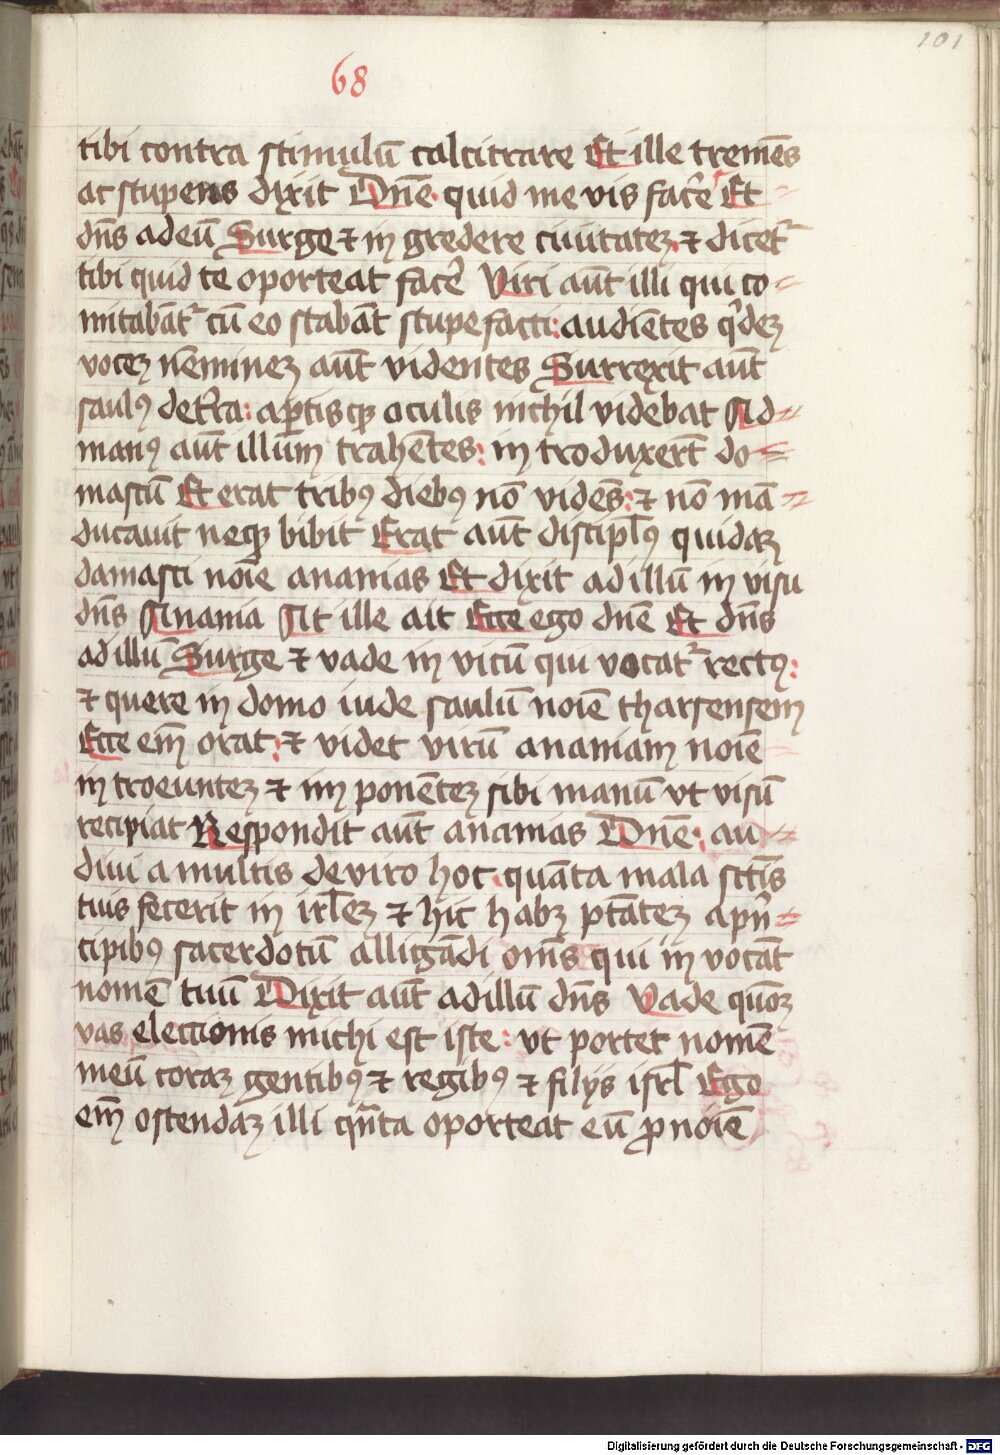 101
68
tibi contra stimulū calcitrare Et ille tremēs
ac stupens dixit Dn̄e quid me vis facẽ Et
dn̄s ad eū Surge ⁊ in gredere ciuitatēz ⁊ dicet᷑
tibi quid te oporteat facẽ Viri aūt illi qui co-
mitabāt᷑ cū eo stabāt stupefacti: audientes qͥdez
vocez neminez aūt videntes Surrexit aūt
saulꝰ de tr̃a: apt̃is qꝫ oculis nichil videbat Ad
manꝰ aūt illum trahentes: in troduxert̃ da=
mascū Et erat tribꝰ diebꝰ nō vides̄: ⁊ nō mā=
ducauit neqꝫ bibit Erat aūt discipl̄ꝰ quidaz
damasci noīe ananias Et dixit ad illū in visu
dn̄s Anania At ille ait Ecce ego dn̄e Et dn̄s
ad illū Surge ⁊ vade in vicū qui vocat᷑ rectꝰ:
⁊ quere in domo iude saulū noīe tharsensem
Ecce em̄ orat: ⁊ videt virū ananiam noīe
in troeuntez ⁊ im ponētez sibi manū vt visū
recipiat Respondit aūt ananias Dn̄e: au=
diui a multis de viro hoc quāta mala sctīs
tuis fecerit in irl̄ez ⁊ hic habꝫ ptātez a pn̄=
cipibꝰ sacerdotū alligādi om̄s qui in vocāt
nomē tuū Dixit aūt ad illū dn̄s Vade quōz
vas eleccionis michi est iste: vt portet nomē
meū coraz gentibꝰ ⁊ regibꝰ ⁊ filijs isrl̄ Ego
em̄ ostendaz illi qn̄ta oporteat eū ꝓ noīe
Digitalisierung gefördert durch die Deutsche Forschungsgemeinschaft - DFG